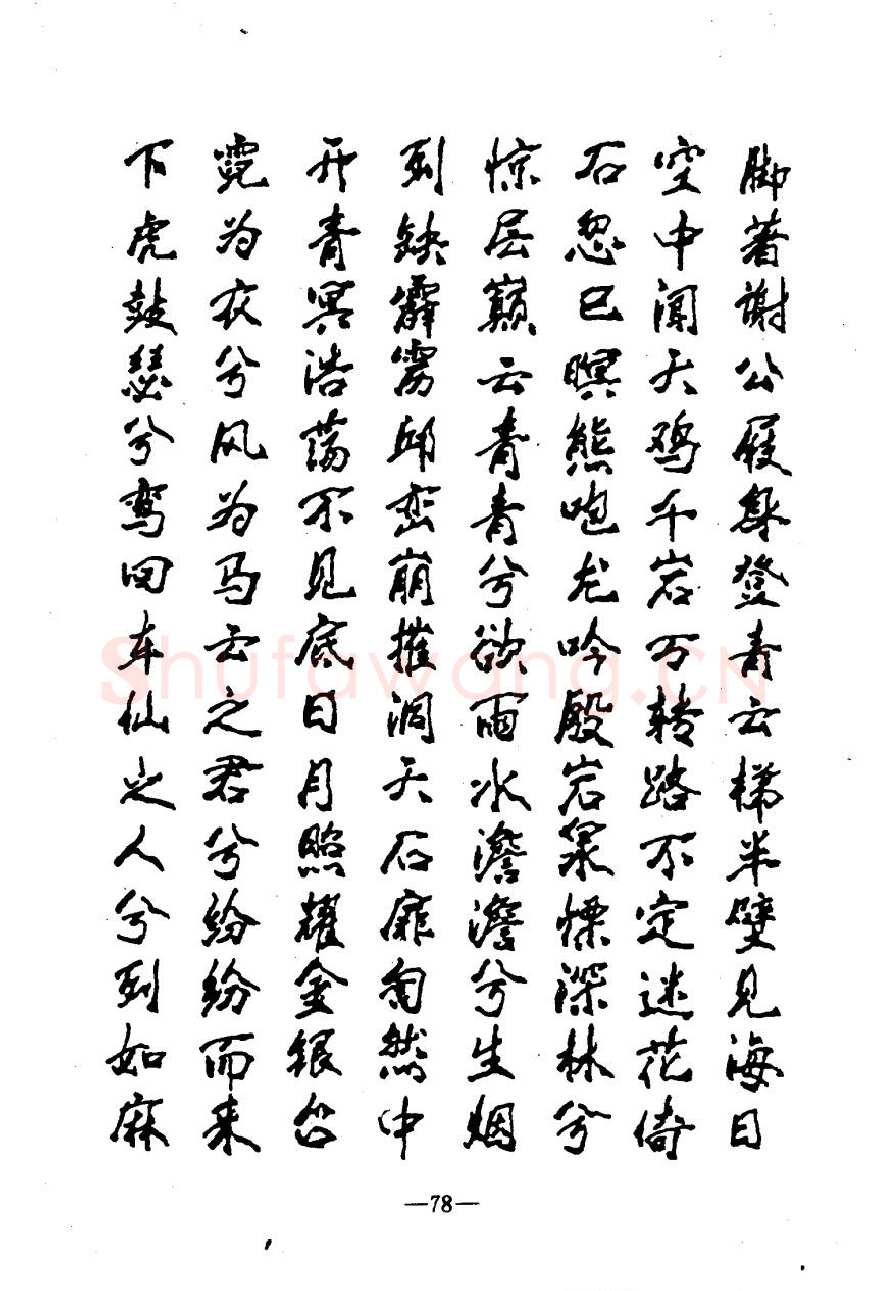 脚著谢公屐身登青云梯半壁见海日
空中闻天鸡千岩万转路不定迷花倚
石忽已暝熊咆龙吟殷岩泉慄深林兮
惊层巅云青青兮欲雨水澹澹兮生烟
列缺霹雳邱峦崩摧洞天石扉訇然中
开青冥浩荡不见底日月照耀金银台
霓为衣兮风为马云之君兮纷纷而来
下虎鼓瑟兮鸾回车仙之人兮列如麻
Shufawang.CN
—78—